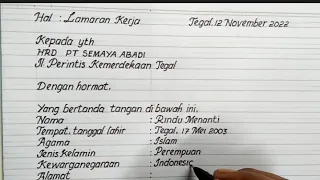 Hal : Lamaran Kerja Tegal, 12 November 2022
Kepada yth
HRD PT SEMAYA ABADI
Jl Perintis Kemerdekaan Tegal
Dengan hormat,
Yang bertanda tangan di bawah ini.
Nama : Rindu Menanti
Tempat, tanggal lahir : Tegal, 17 Mei 2003
Agama : Islam
Jenis kelamin : Perempuan
Kewarganegaraan : Indonesic
Alamat :